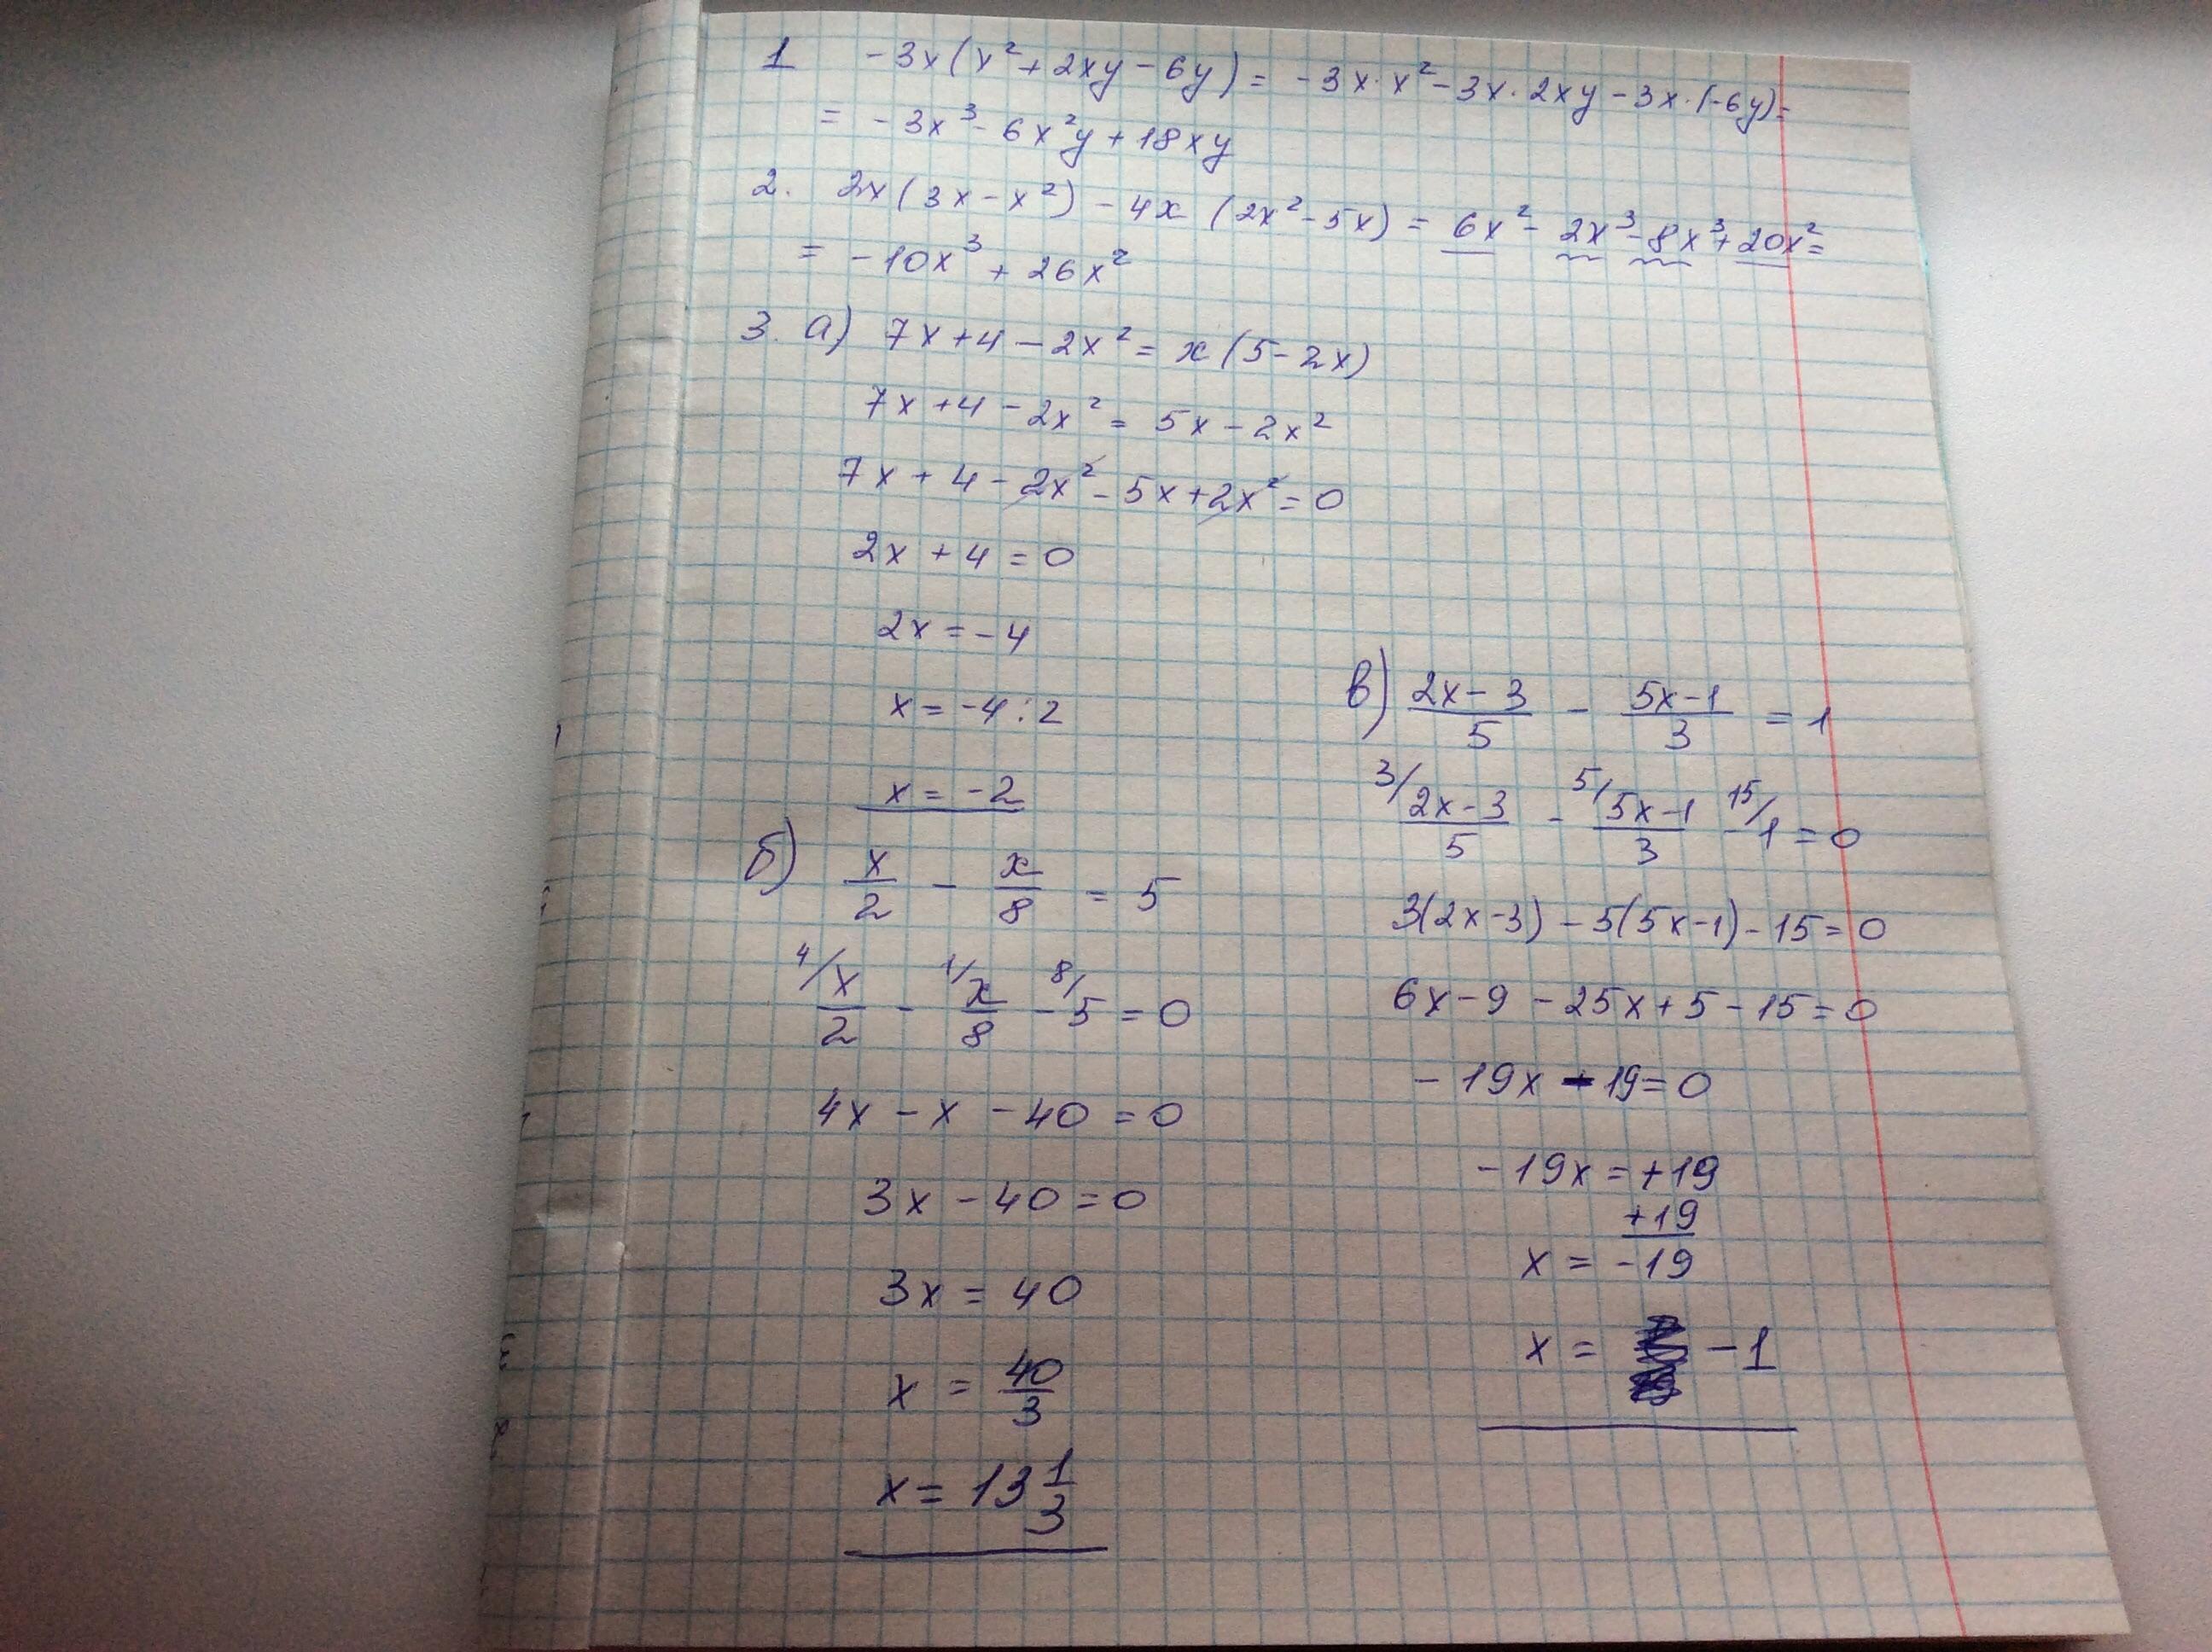 1 -3x(x²+2xy-6y) = -3x·x²-3x·2xy-3x·(-6y)=
= -3x³-6x²y+18xy
2. 2x(3x-x²)-4x(2x²-5x) = 6x²-2x³-8x³+20x²=
= -10x³+26x²
3. а) 7x+4-2x²=x(5-2x)
7x+4-2x²=5x-2x²
7x+4-2x²-5x+2x²=0
2x+4=0
2x=-4
x=-4:2
x=-2
б) x/2 - x/8 = 5
4/ x/2 - 1/ x/8 - 8/ 5 = 0
4x-x-40=0
3x-40=0
3x=40
x = 40/3
x = 13 1/3
в) (2x-3)/5 - (5x-1)/3 = 1
3/ (2x-3)/5 - 5/ (5x-1)/3 - 15/ 1 = 0
3(2x-3)-5(5x-1)-15=0
6x-9-25x+5-15=0
-19x-19=0
-19x=+19
x = +19/-19
x = -1